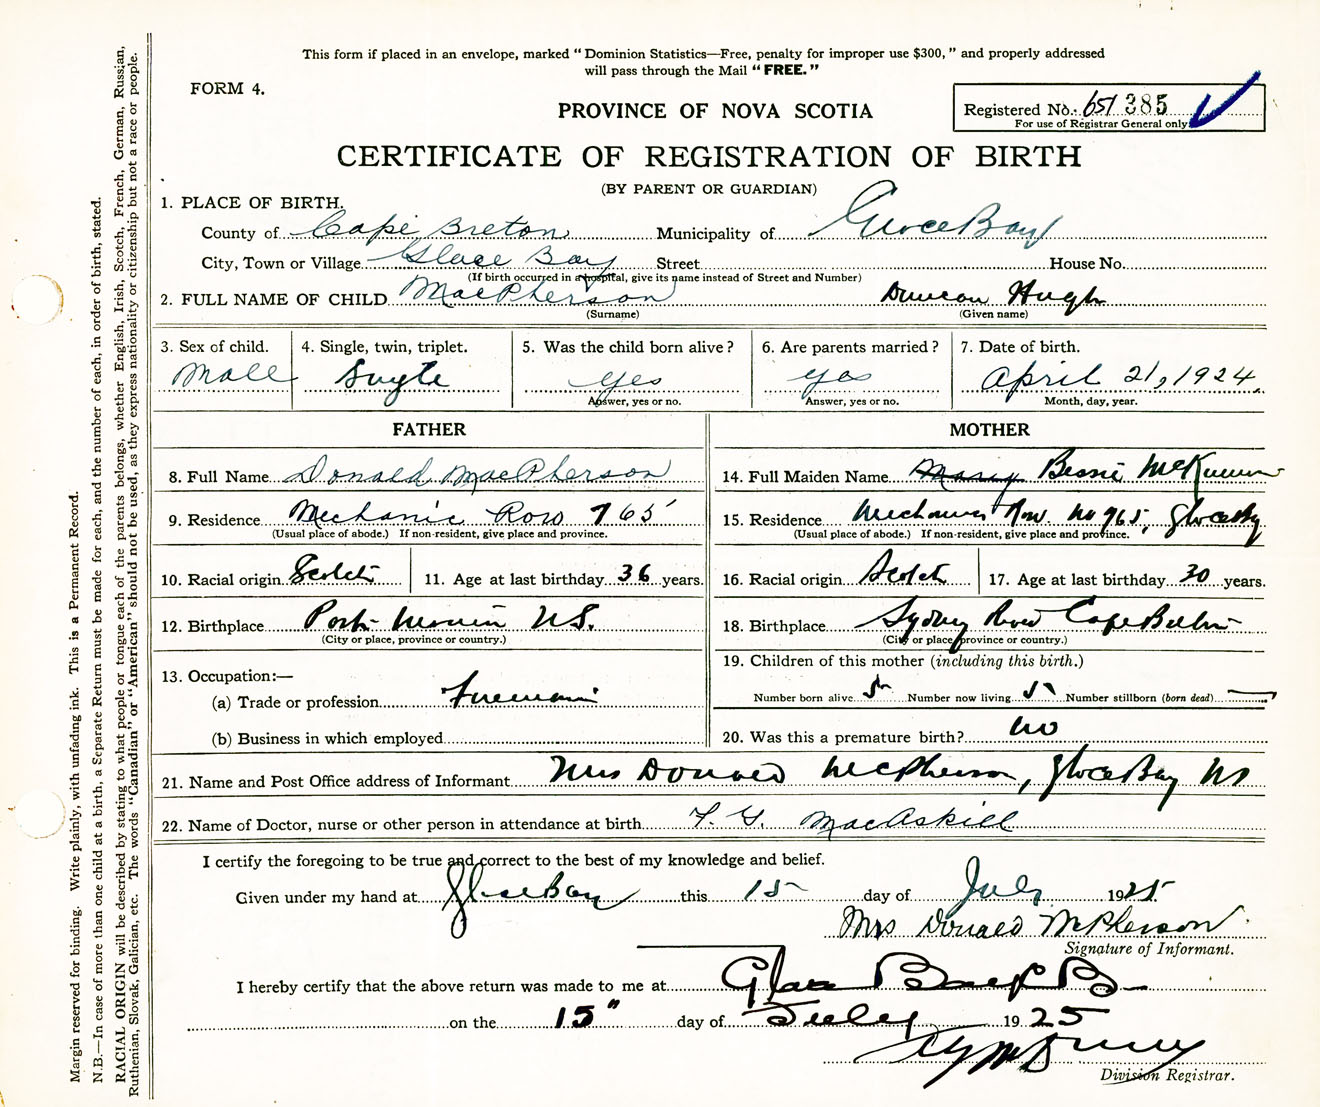 This form if placed in an envelope, marked "Dominion Statistics—Free, penalty for improper use $300," and properly addressed
will pass through the Mail "FREE."
FORM 4.
PROVINCE OF NOVA SCOTIA
Registered No. 651 385
For use of Registrar General only
CERTIFICATE OF REGISTRATION OF BIRTH
(BY PARENT OR GUARDIAN)
1. PLACE OF BIRTH.
County of Cape Breton Municipality of Glace Bay
City, Town or Village Glace Bay Street House No.
(If birth occurred in a hospital, give its name instead of Street and Number)
2. FULL NAME OF CHILD MacPherson Duncan Hugh
(Surname) (Given name)
3. Sex of child. 4. Single, twin, triplet. 5. Was the child born alive? 6. Are parents married? 7. Date of birth.
Male Single yes yes April 21, 1924
Answer, yes or no. Answer, yes or no. Month, day, year.
FATHER MOTHER
8. Full Name Donald MacPherson 14. Full Maiden Name Mary Bessie McKinnon
9. Residence Mechanic Row 765 15. Residence Mechanic Row No 765, Glace Bay
(Usual place of abode.) If non-resident, give place and province. (Usual place of abode.) If non-resident, give place and province.
10. Racial origin Scotch 11. Age at last birthday 36 years. 16. Racial origin Scotch 17. Age at last birthday 30 years.
12. Birthplace Port Morien N.S. 18. Birthplace Sydney River Cape Breton
(City or place, province or country.) (City or place, province or country.)
19. Children of this mother (including this birth.)
13. Occupation:—
(a) Trade or profession Number born alive 5 Number now living 5 Number stillborn (born dead)
(b) Business in which employed 20. Was this a premature birth? no
21. Name and Post Office address of Informant Mrs Donald McPherson, Glace Bay NS
22. Name of Doctor, nurse or other person in attendance at birth MacAskill
I certify the foregoing to be true and correct to the best of my knowledge and belief.
Given under my hand at Glace Bay this 15 day of July 1925
Mrs Donald McPherson
Signature of Informant.
I hereby certify that the above return was made to me at Glace Bay C B
on the 15" day of July 1925
Division Registrar.
Margin reserved for binding. Write plainly, with unfading ink. This is a Permanent Record.
N.B.—In case of more than one child at a birth, a Separate Return must be made for each, and the number of each, in order of birth, stated.
RACIAL ORIGIN will be described by stating to what people or tongue each of the parents belongs, whether English, Irish, Scotch, French, German, Russian,
Ruthenian, Slovak, Galician, etc. The words "Canadian" or "American" should not be used, as they express nationality or citizenship but not a race or people.